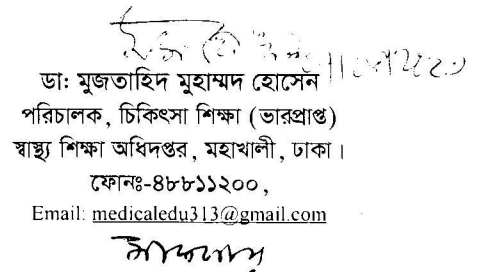 ডা: মুজতাহিদ মুহাম্মদ হোসেন
পরিচালক, চিকিৎসা শিক্ষা (ভারপ্রাপ্ত)
স্বাস্থ্য শিক্ষা অধিদপ্তর, মহাখালী, ঢাকা।
ফোনঃ-৪৮৮১১২০০,
Email: medicaledu313@gmail.com